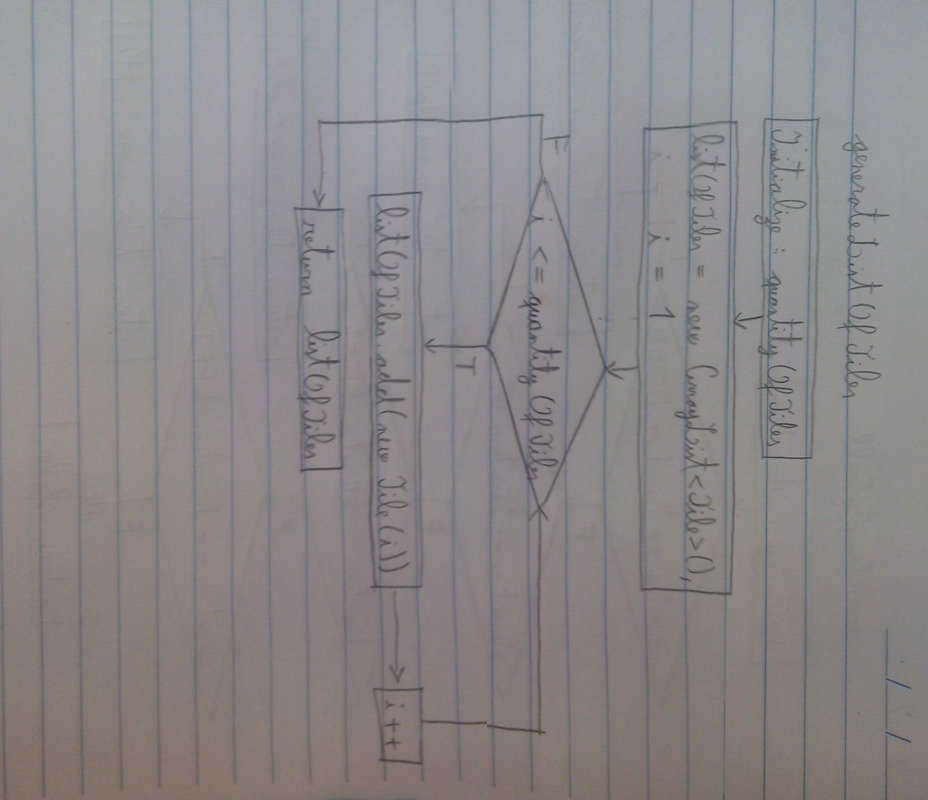 / /
generateListOfTiles
Initialize: quantityOfTiles
listOfTiles = new ArrayList<Tile>(),
i = 1
F
i <= quantityOfTiles
T
listOfTiles.add(new Tile(i))
i++
return listOfTiles